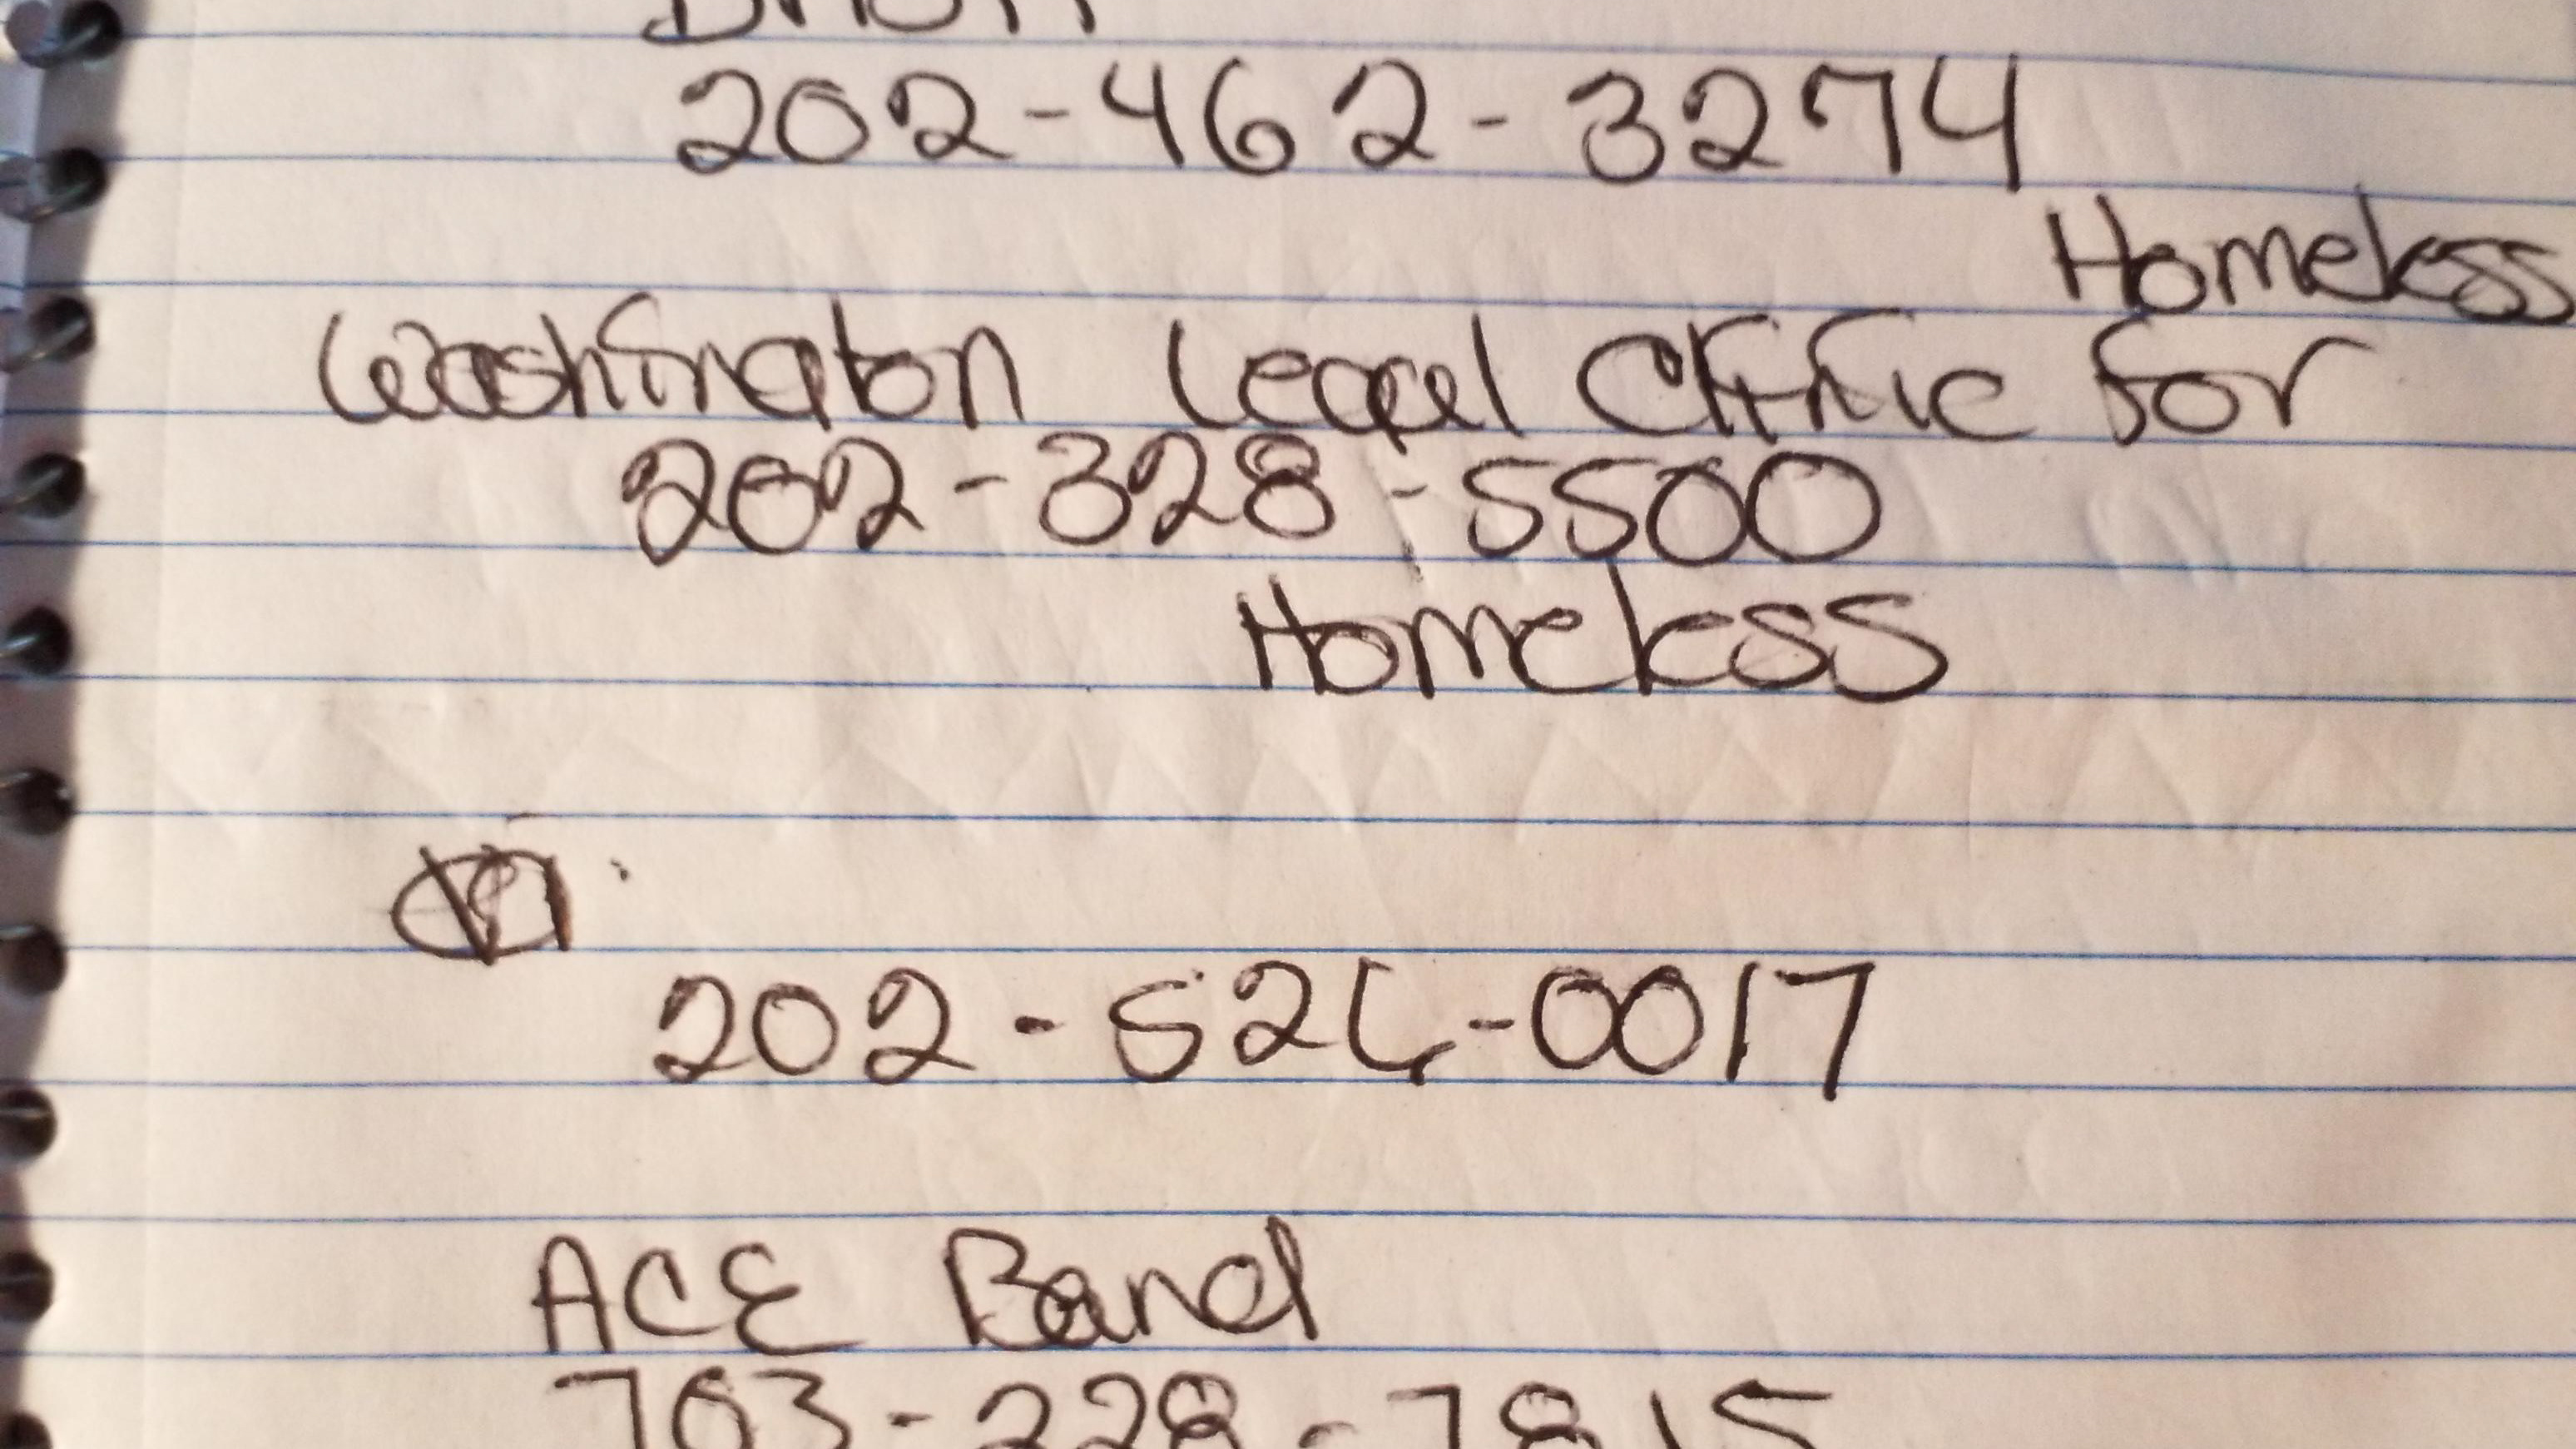 202-462-3274
Homeless
Washington Legal Clinic for
202-328-5500
Homeless
202-526-0017
ACE Band
703-228-7815